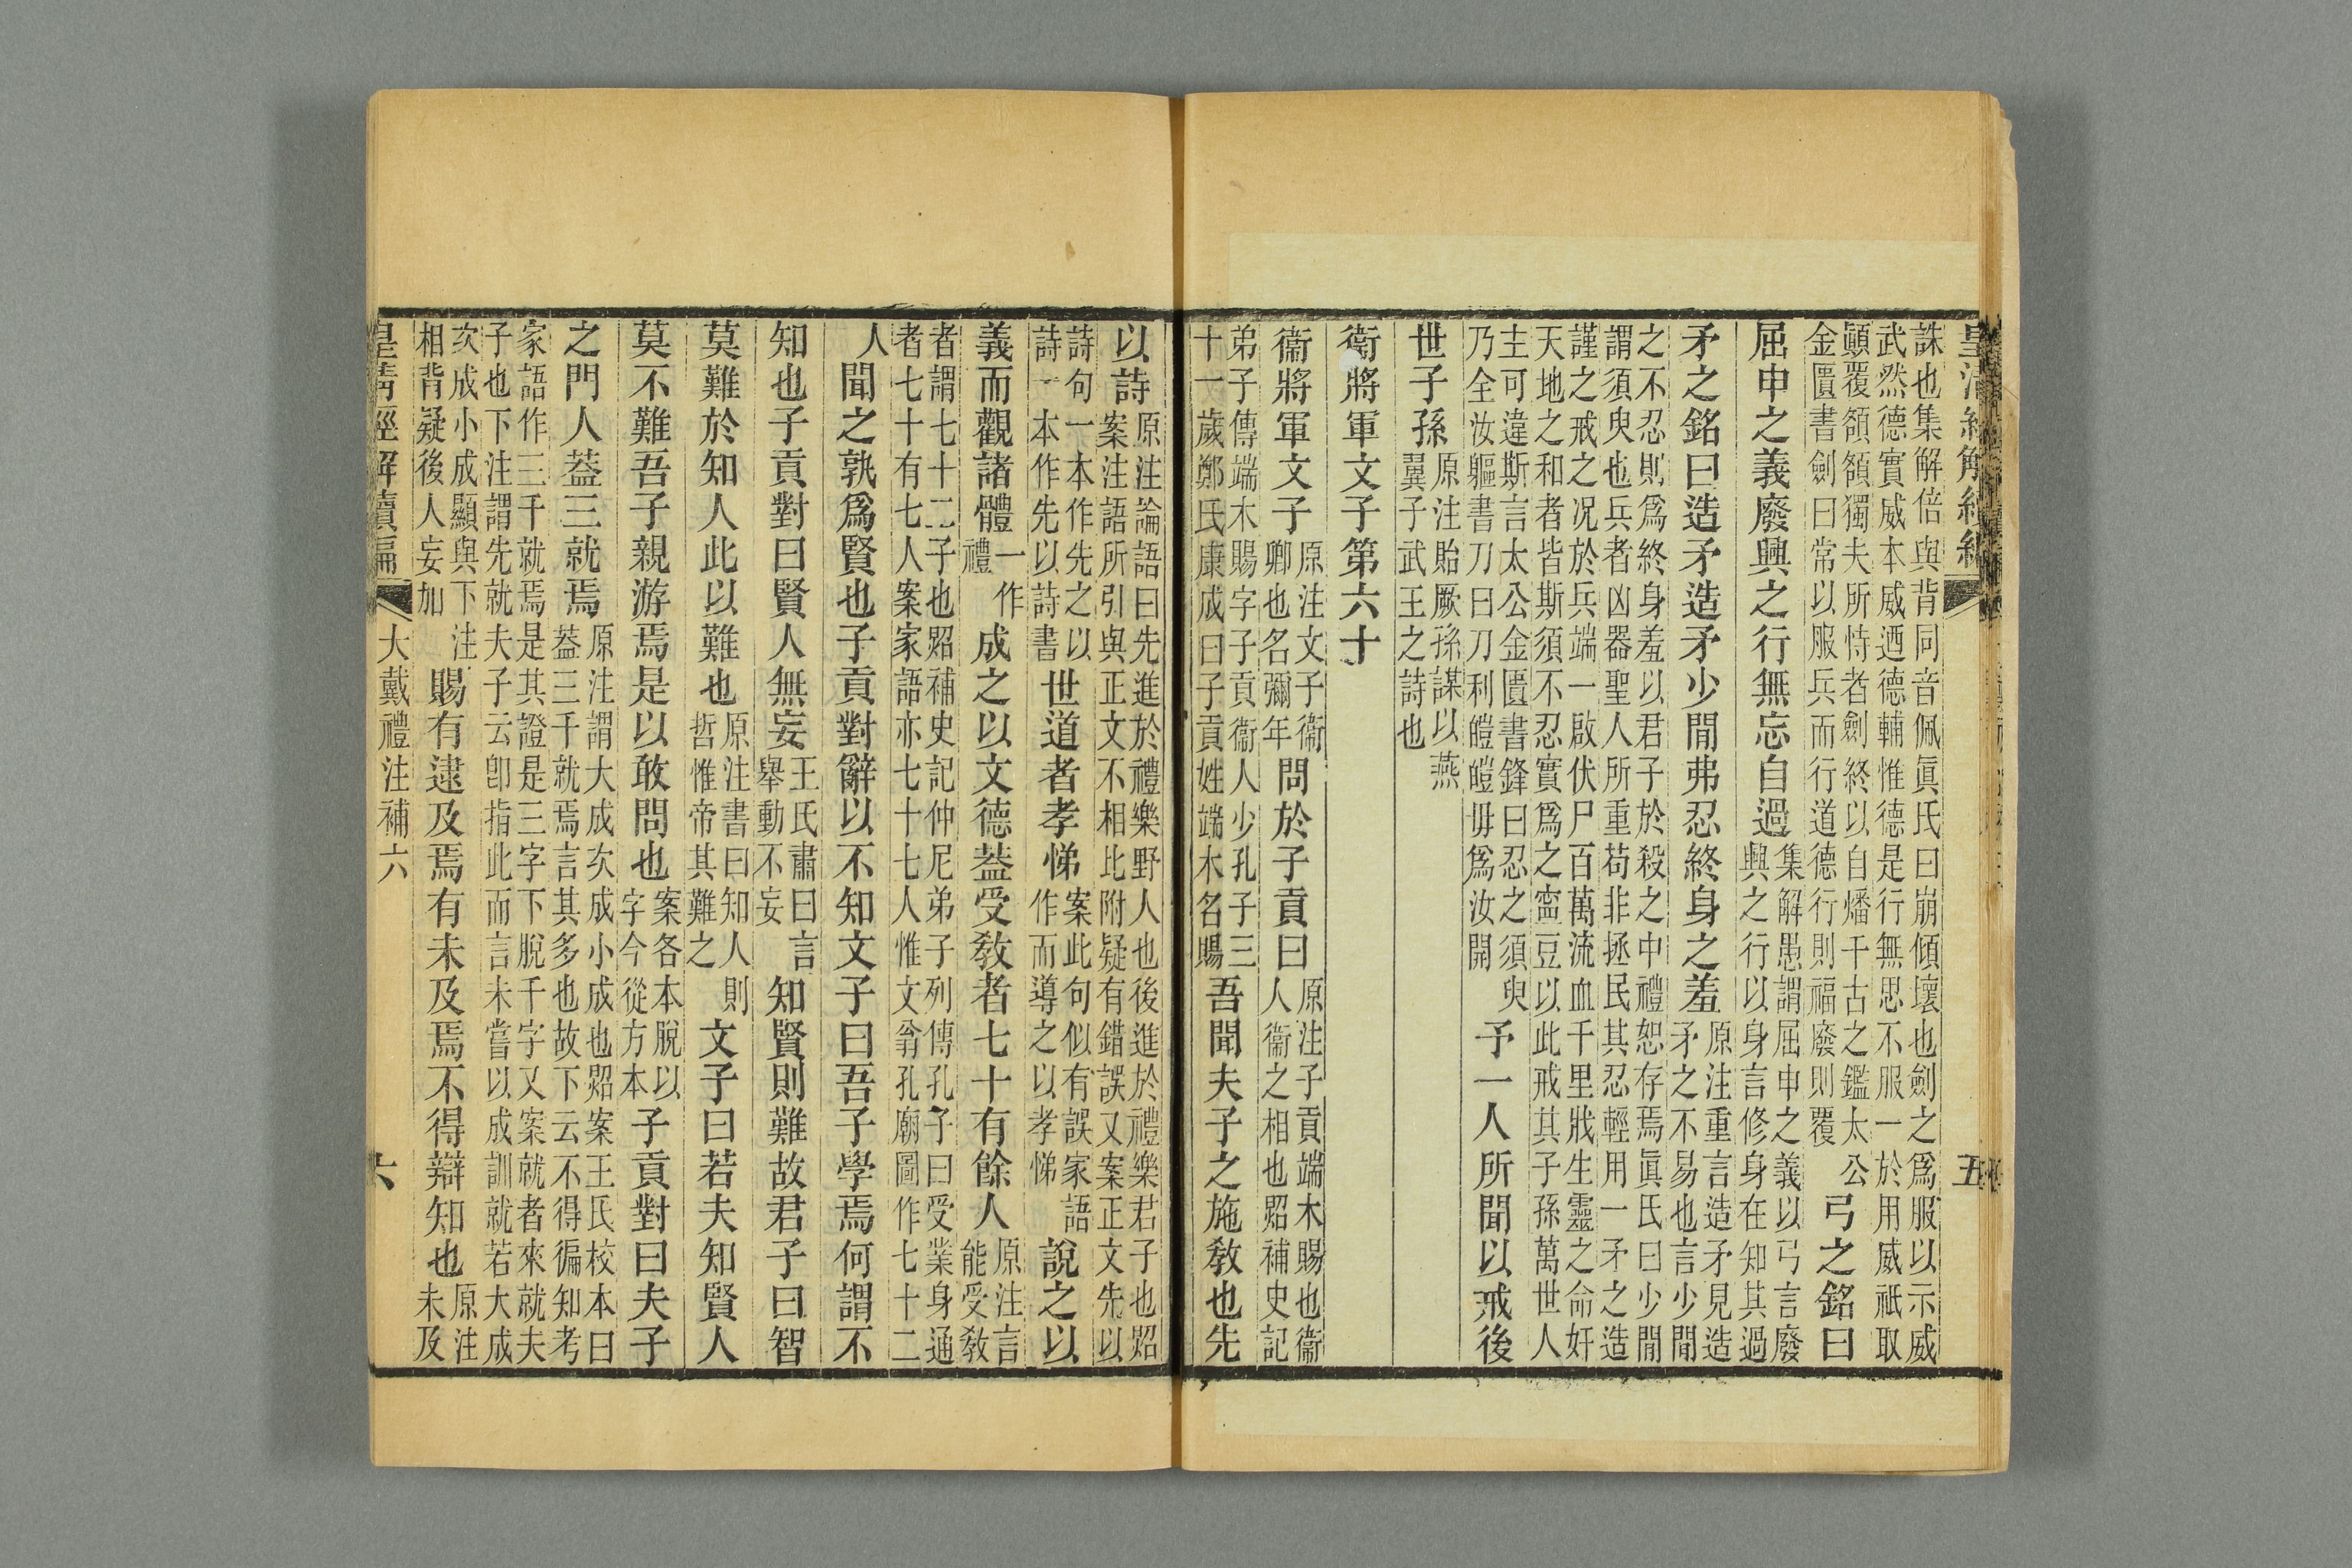 皇清經解續編 五
誅也集解倍與背同音佩眞氏曰崩傾壞也劍之爲服以示威
武然德實威本威迺德輔惟德是行無思不服一於用威祇取
顚覆額額獨夫所恃者劍終以自燔千古之鑑太公
金匱書劍曰常以服兵而行道德行則福廢則覆
弓之銘曰
屈申之義廢興之行無忘自過
集解愚謂屈申之義以弓言廢
興之行以身言修身在知其過
矛之銘曰造矛造矛少閒弗忍終身之羞
原注重言造矛見造
矛之不易也言少閒
之不忍則爲終身羞以君子於殺之中禮恕存焉眞氏曰少閒
謂須臾也兵者凶器聖人所重苟非拯民其忍輕用一矛之造
謹之戒之况於兵端一啟伏尸百萬流血千里戕生靈之命奸
天地之和者皆斯須不忍實爲之豆以此戒其子孫萬世人
主可違斯言太公金匱書鋒曰忍之須臾
乃全汝軀書刀曰刀利皚皚毋爲汝開
予一人所聞以戒後
世子孫
原注貽厥孫謀以燕
翼子武王之詩也
衛將軍文子第六十
衞將軍文子
原注文子衞
卿也名彌年
問於子貢曰
原注子貢端木賜也衞
人衞之相也炤補史記
弟子傳端木賜字子貢衞人少孔子三
十一歲鄭氏康成曰子貢姓端木名賜
吾聞夫子之施敎也先
以詩
原注論語曰先進於禮樂野人也後進於禮樂君子也炤
案注語所引與正文不相比附疑有錯誤又案正文先以
詩句一本作先之以
詩一本作先以詩書
世道者孝悌
案此句似有誤家語
作而導之以孝悌
說之以
義而觀諸體
一作
禮
成之以文德葢受敎者七十有餘人
原注言
能受敎
者謂七十二子也炤補史記仲尼弟子列傳孔子曰受業身通
者七十有七人案家語亦七十七人惟文翁孔廟圖作七十二
人
聞之孰爲賢也子貢對辭以不知文子曰吾子學焉何謂不
知也子貢對曰賢人無妄
王氏肅曰言
舉動不妄
知賢則難故君子曰智
莫難於知人此以難也
原注書曰知人則
哲惟帝其難之
文子曰若夫知賢人
莫不難吾子親游焉是以敢問也
案各本脫以
字今從方本
子貢對曰夫子
之門人葢三就焉
原注謂大成次成小成也炤案王氏校本曰
葢三千就焉言其多也故下云不得徧知考
家語作三千就焉是其證是三字下脫千字又案就者來就夫
子也下注謂先就夫子云卽指此而言未嘗以成訓就若大成
次成小成顯與下注
相背疑後人妄加
賜有逮及焉有未及焉不得辯知也
原注
未及
皇清經解續編 大戴禮注補六 六